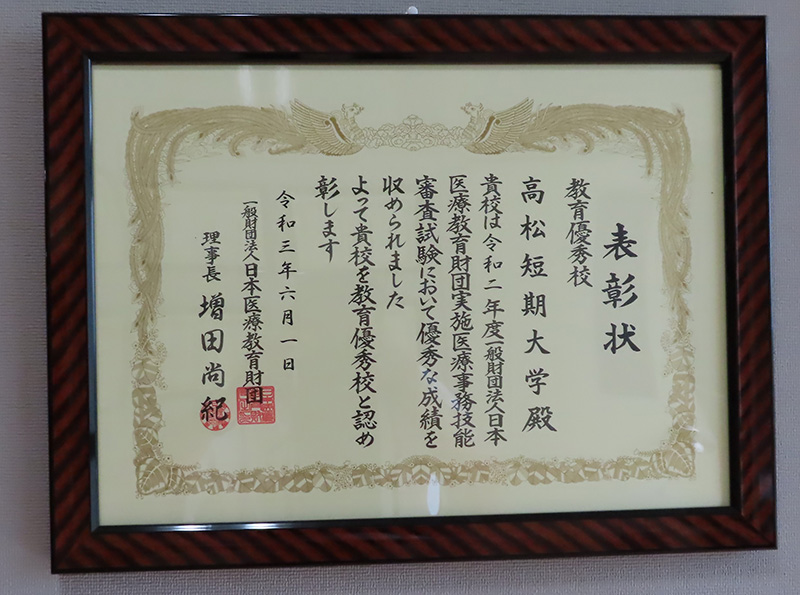 表彰状
教育優秀校
高松短期大学殿
貴校は令和二年度一般財団法人日本
医療教育財団実施医療事務技能
審査試験において優秀な成績を
収められました
よって貴校を教育優秀校と認め
彰します
令和三年六月一日
一般財団法人日本医療教育財団
理事長 増田尚紀